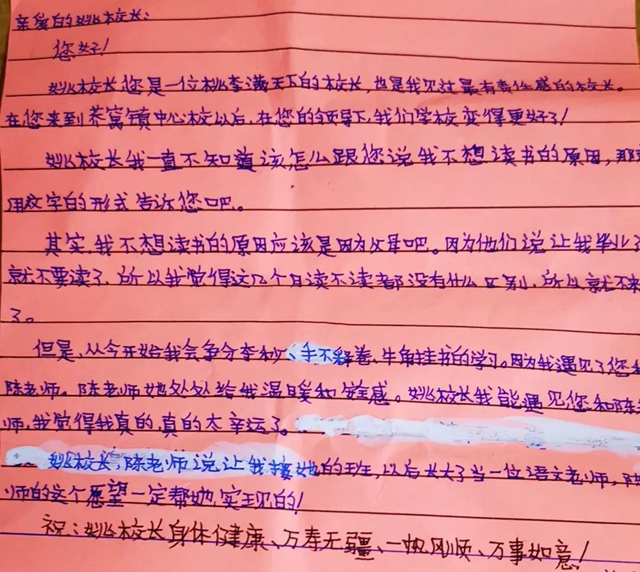 亲爱的姚校长:
您好!
姚校长您是一位桃李满天下的校长,也是我见过最有责任感的校长。
在您来到茶窝镇中心校以后,在您的领导下,我们学校变得更好了!
姚校长我一直不知道该怎么跟您说我不想读书的原因,那
用文字的形式告诉您吧。
其实,我不想读书的原因应该是因为父母吧。因为他们说让我毕业了
就不要读了,所以我觉得这几个月读不读都没有什么区别,所以就不来
了。
但是,从今开始我会争分李秒、手不释卷、牛角挂书的学习。因为我遇见了您和
陈老师。陈老师她处处给我温暖和安全感。姚校长我能遇见您和陈
师,我觉得我真的,真的太辛运了。
姚校长,陈老师说让我接她的班,以后长大了当一位语文老师,陈
师的这个愿望一定帮她实现的!
祝:姚校长身体健康、万寿无疆、一帆风顺、万事如意!